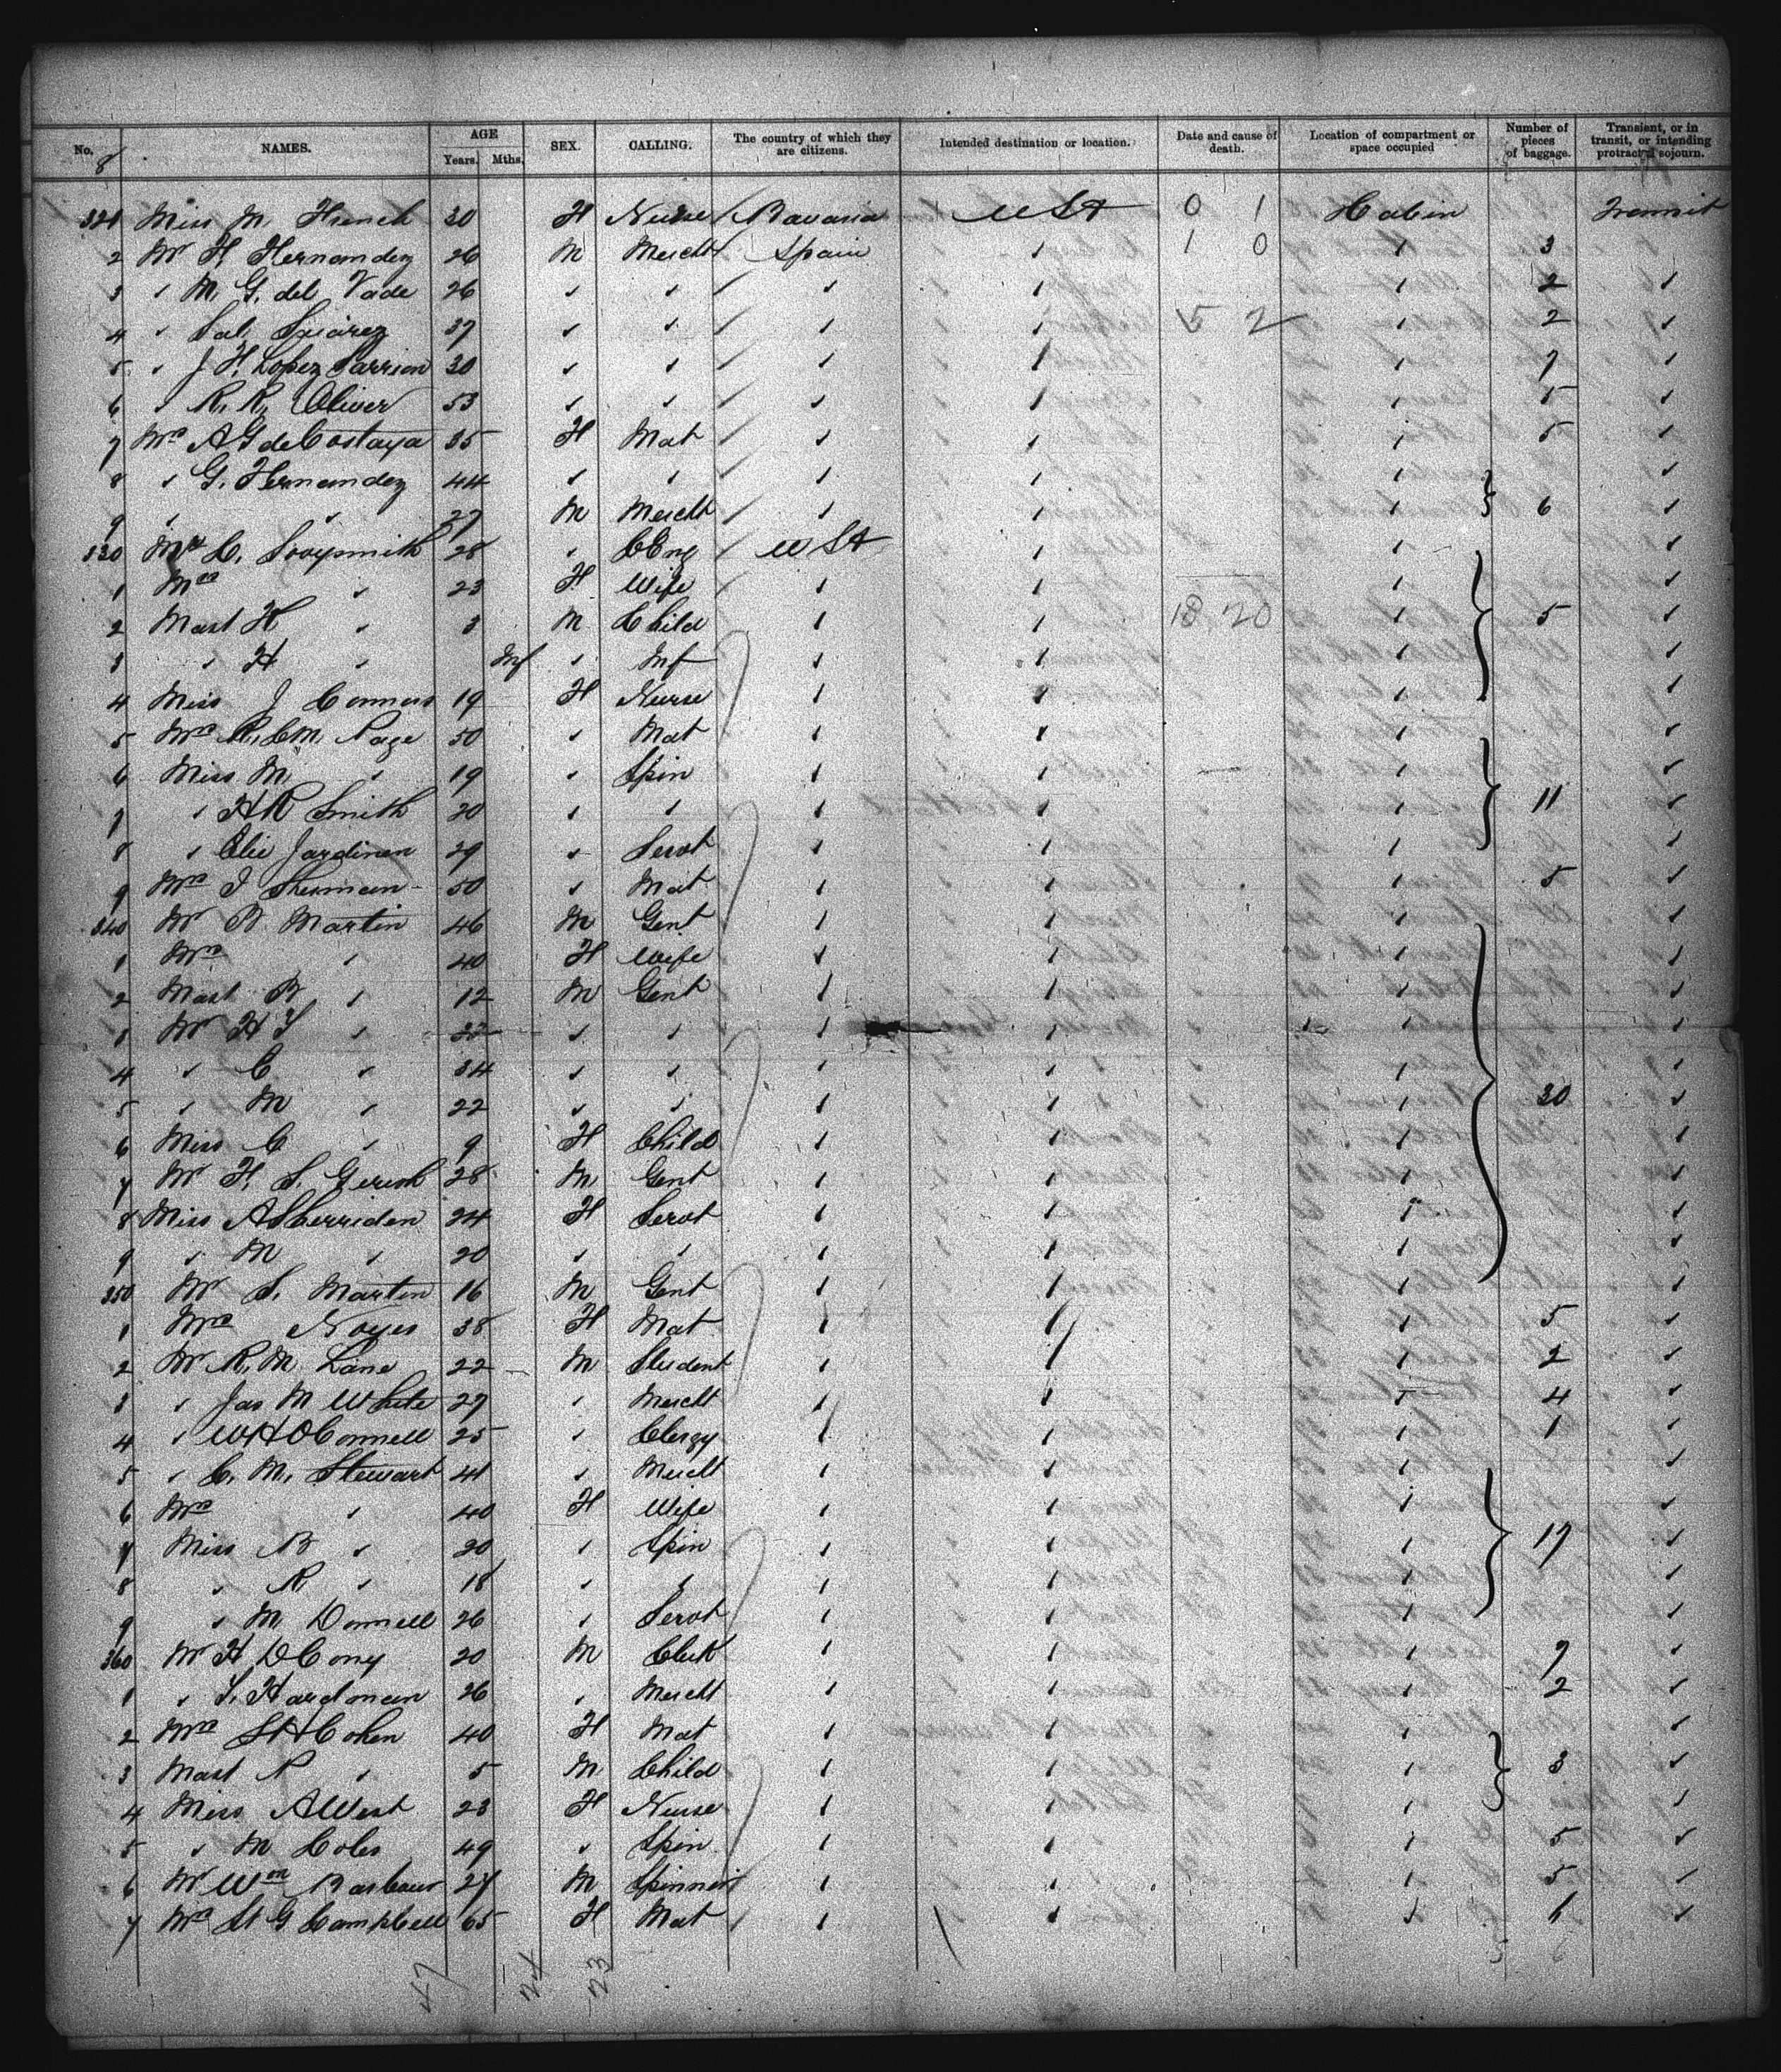 No. NAMES. AGE Years. Mths. SEX. CALLING. The country of which they are citizens. Intended destination or location. Date and cause of death. Location of compartment or space occupied Number of pieces of baggage. Transient, or in transit, or intending protracted sojourn.
8
321 Miss M French 30 F Nurse Bavaria U St 0 1 Cabin Transit
2 Mr F. Hernandez 26 M Mercht Spain 1 0 3
3 " M. G. del Vade 26 " " " " " 2 "
4 " Sal. Suarez 37 " " " " 5 2 " 2 "
5 " J. F. Lopez 30 " " " " " 7 "
6 " R. R. Oliver 53 " " " " " 5 "
7 Mrs A G de Costaya 35 F Mat " " " 5 "
8 " G. Hernandez 44 " " " " " "
9 " " 27 M Mercht " " " 6 "
330 Mr C. Sooysmith 28 " C Eng U St " " "
1 Mrs " 23 F Wife " " " "
2 Mast F " 3 M Child " " 18 20 " 5 "
3 " H " Inf " Inf " " " "
4 Miss J Connors 19 F Nurse " " " "
5 Mrs R. C M. Page 50 " Mat " " " "
6 Miss M " 19 " Spin " " " "
7 " H R Smith 20 " " " " " 11 "
8 " Elie Jardinen 29 " Servt " " " "
9 Mrs I Sherman 50 " Mat " " " 5 "
340 Mr B Martin 46 M Gent " " " "
1 Mrs " 40 F Wife " " " "
2 Mast B " 12 M Gent " " " "
3 Mr H T " 32 " " " " " "
4 " C " 34 " " " " " "
5 " M " 22 " " " " " 30 "
6 Miss C " 9 F Child " " " "
7 Mr F. S. Gerish 28 M Gent " " " "
8 Miss A Sherriden 24 F Servt " " " "
9 " M " 20 " " " " " "
350 Mr S. Martin 16 M Gent " " " "
1 Mrs Noyes 38 F Mat " " " 5 "
2 Mr R. M Lane 22 M Student " " " 2 "
3 " Jas M White 27 " Mercht " " " 4 "
4 " W H O Connell 25 " Clergy " " " 1 "
5 " C. M. Stewart 41 " Mercht " " " "
6 Mrs " 40 F Wife " " " "
7 Miss B " 20 " Spin " " " 17 "
8 " R " 18 " " " " " "
9 " M. Donnell 26 " Servt " " " "
360 Mr H D Cony 20 M Clerk " " " 7 "
1 " S. Hardman 26 " Mercht " " " 2 "
2 Mrs S H Cohen 40 F Mat " " " "
3 Mast R " 5 M Child " " " 3 "
4 Miss A West 23 F Nurse " " " "
5 " M Coles 49 " Spin " " " 5 "
6 Mr Wm Barbour 27 M Spinner " " " 5 "
7 Mrs St G Campbell 65 F Mat " " " "
47 24 23